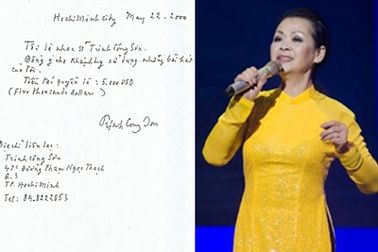 HochiMinh City May 22. 2000
Tôi là nhạc sĩ Trịnh Công Sơn.
Đồng ý cho Khánh Ly sử dụng những bài hát
của tôi.
Tiền tác quyền là : 5,000 USD
(Five thousands Dollar)
Trịnh Cong Son
Địa chỉ liên lạc :
Trịnh Công Sơn
47c Đường Phạm Ngọc Thạch
Q.3
TP. HochiMinh
Tel: